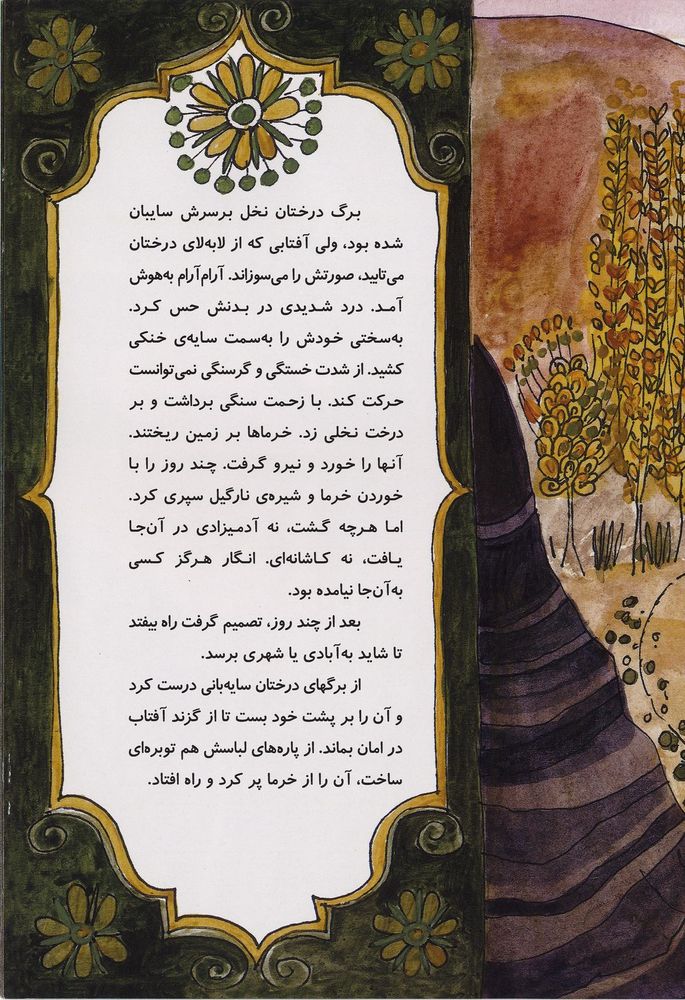 برگ درختان نخل برسرش سایبان
شده بود، ولی آفتابی که از لابه‌لای درختان
می‌تابید، صورتش را می‌سوزاند. آرام‌آرام به‌هوش
آمد. درد شدیدی در بدنش حس کرد.
به‌سختی خودش را به‌سمت سایه‌ی خنکی
کشید. از شدت خستگی و گرسنگی نمی‌توانست
حرکت کند. با زحمت سنگی برداشت و بر
درخت نخلی زد. خرماها بر زمین ریختند.
آنها را خورد و نیرو گرفت. چند روز را با
خوردن خرما و شیره‌ی نارگیل سپری کرد.
اما هرچه گشت، نه آدمیزادی در آن‌جا
یافت، نه کاشانه‌ای. انگار هرگز کسی
به‌آن‌جا نیامده بود.
بعد از چند روز، تصمیم گرفت راه بیفتد
تا شاید به‌آبادی یا شهری برسد.
از برگهای درختان سایه‌بانی درست کرد
و آن را بر پشت خود بست تا از گزند آفتاب
در امان بماند. از پاره‌های لباسش هم توبره‌ای
ساخت، آن را از خرما پر کرد و راه افتاد.